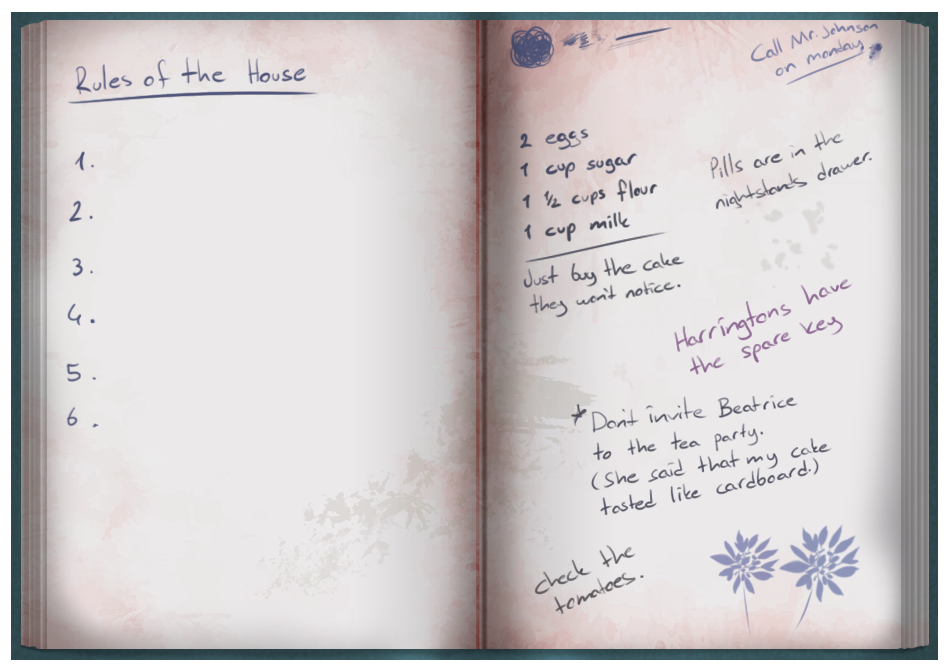 Rules of the House
1.
2.
3.
4.
5.
6.
Call Mr. Johnson
on monday
2 eggs
1 cup sugar
1 1/2 cups flour
1 cup milk
Just buy the cake
they won't notice.
Pills are in the
nightstands drawer.
Harringtons have
the spare key
* Don't invite Beatrice
to the tea party.
(She said that my cake
tasted like cardboard.)
check the
tomatoes.